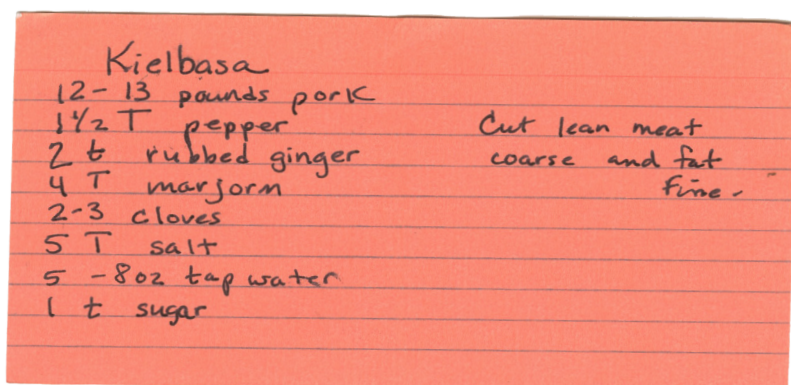 Kielbasa
12 - 13 pounds pork
1 1/2 T pepper
2 t rubbed ginger
4 T marjorm
2-3 cloves
5 T salt
5 - 8oz tap water
1 t sugar
Cut lean meat
coarse and fat
fine.